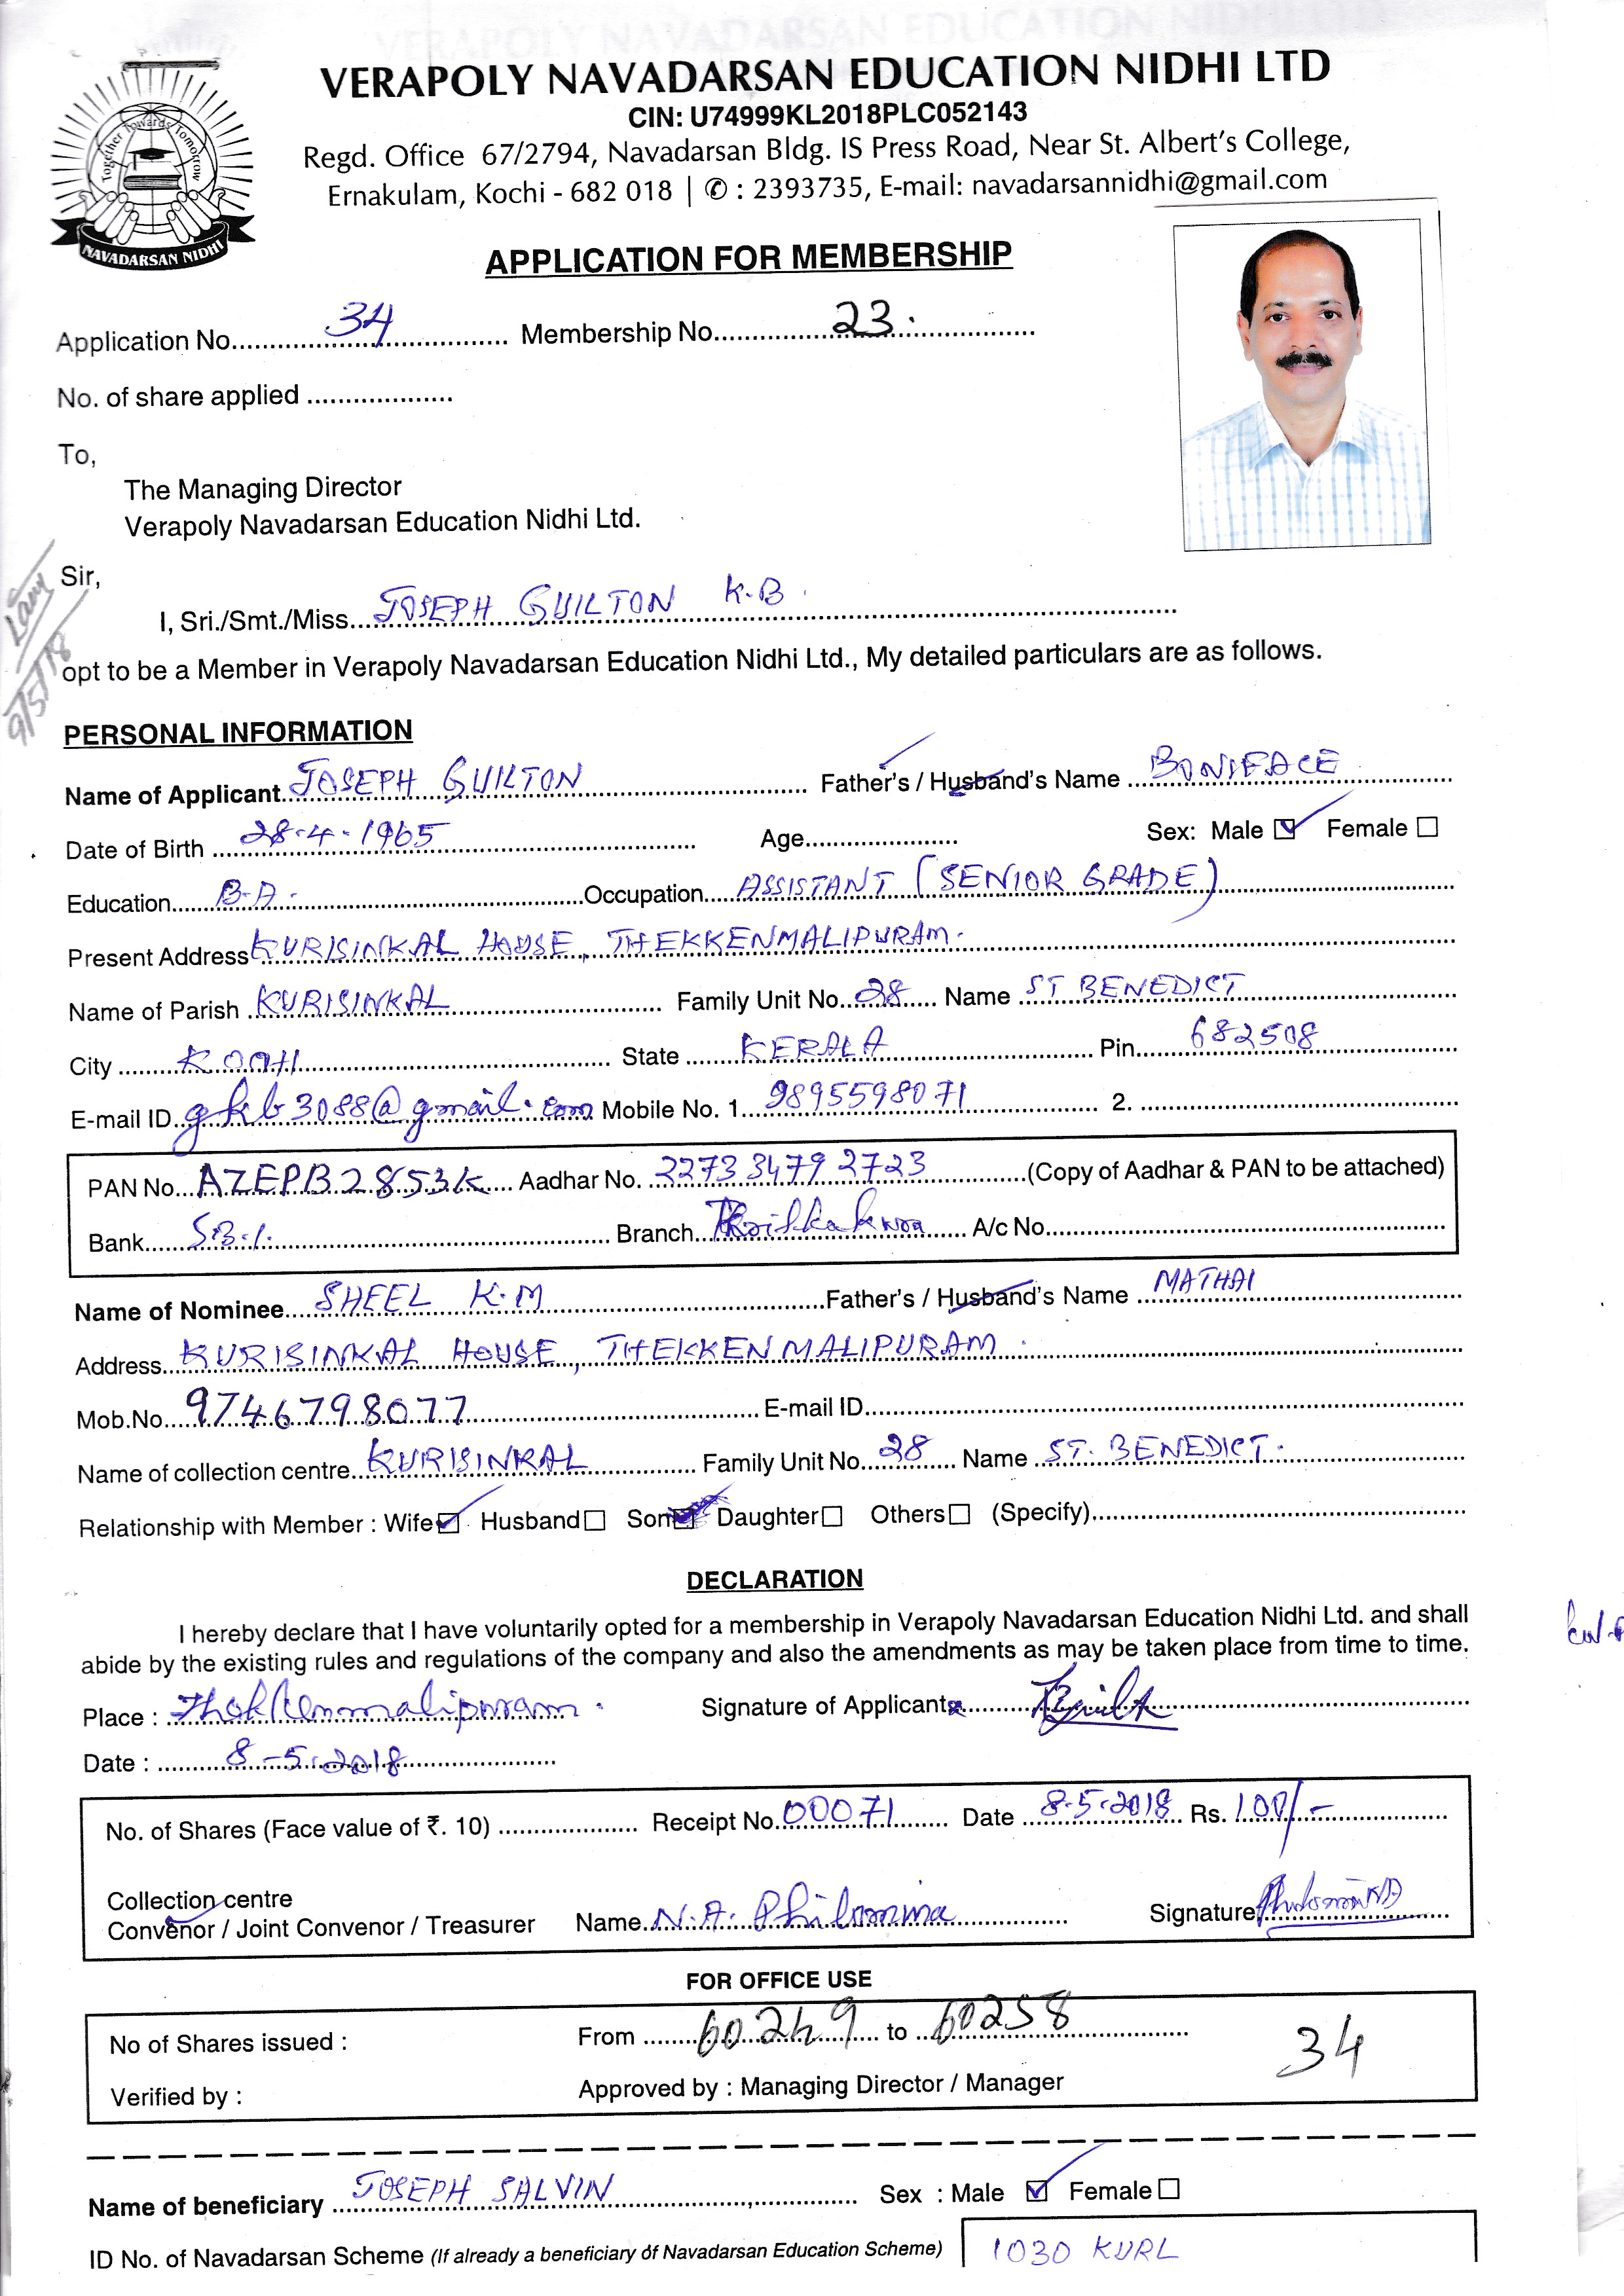 VERAPOLY NAVADARSAN EDUCATION NIDHI LTD
CIN: U74999KL2018PLC052143
Regd. Office 67/2794, Navadarsan Bldg. IS Press Road, Near St. Albert's College,
Ernakulam, Kochi - 682 018 | ✆ : 2393735, E-mail: navadarsannidhi@gmail.com
Together Towards Tomorrow
NAVADARSAN NIDHI
APPLICATION FOR MEMBERSHIP
Application No. 34 Membership No. 23.
No. of share applied
To,
The Managing Director
Verapoly Navadarsan Education Nidhi Ltd.
Sir,
I, Sri./Smt./Miss. JOSEPH GUILTON K.B.
opt to be a Member in Verapoly Navadarsan Education Nidhi Ltd., My detailed particulars are as follows.
9/5/18
PERSONAL INFORMATION
Name of Applicant. JOSEPH GUILTON Father's / Husband's Name BONIFACE
Date of Birth 28-4-1965 Age Sex: Male ☑ Female ☐
Education B.A. Occupation ASSISTANT (SENIOR GRADE)
Present Address KURISINKAL HOUSE, THEKKENMALIPURAM.
Name of Parish KURISINKAL Family Unit No. 28 Name ST BENEDICT
City KOCHI State KERALA Pin 682508
E-mail ID gkb3088@gmail.com Mobile No. 1. 9895598071 2.
PAN No. AZEPB2853K Aadhar No. 2273 3479 2723 (Copy of Aadhar & PAN to be attached)
Bank S.B.I. Branch Thrikkakara A/c No.
Name of Nominee SHEEL K.M Father's / Husband's Name MATHAI
Address KURISINKAL HOUSE, THEKKENMALIPURAM.
Mob.No. 9746798077 E-mail ID
Name of collection centre KURISINKAL Family Unit No. 28 Name ST. BENEDICT.
Relationship with Member : Wife ☑ Husband ☐ Son Daughter ☐ Others ☐ (Specify)
DECLARATION
I hereby declare that I have voluntarily opted for a membership in Verapoly Navadarsan Education Nidhi Ltd. and shall
abide by the existing rules and regulations of the company and also the amendments as may be taken place from time to time.
Place : Thekkenmalipuram. Signature of Applicant
Date : 8-5-2018
No. of Shares (Face value of ₹. 10) Receipt No. 00071 Date 8-5-2018 Rs. 100/-
Collection centre
Convenor / Joint Convenor / Treasurer Name N.A. Philomina Signature
FOR OFFICE USE
No of Shares issued : From 60249 to 60258 34
Verified by : Approved by : Managing Director / Manager
Name of beneficiary JOSEPH SALVIN Sex : Male ☑ Female ☐
ID No. of Navadarsan Scheme (If already a beneficiary of Navadarsan Education Scheme) 1030 KURL